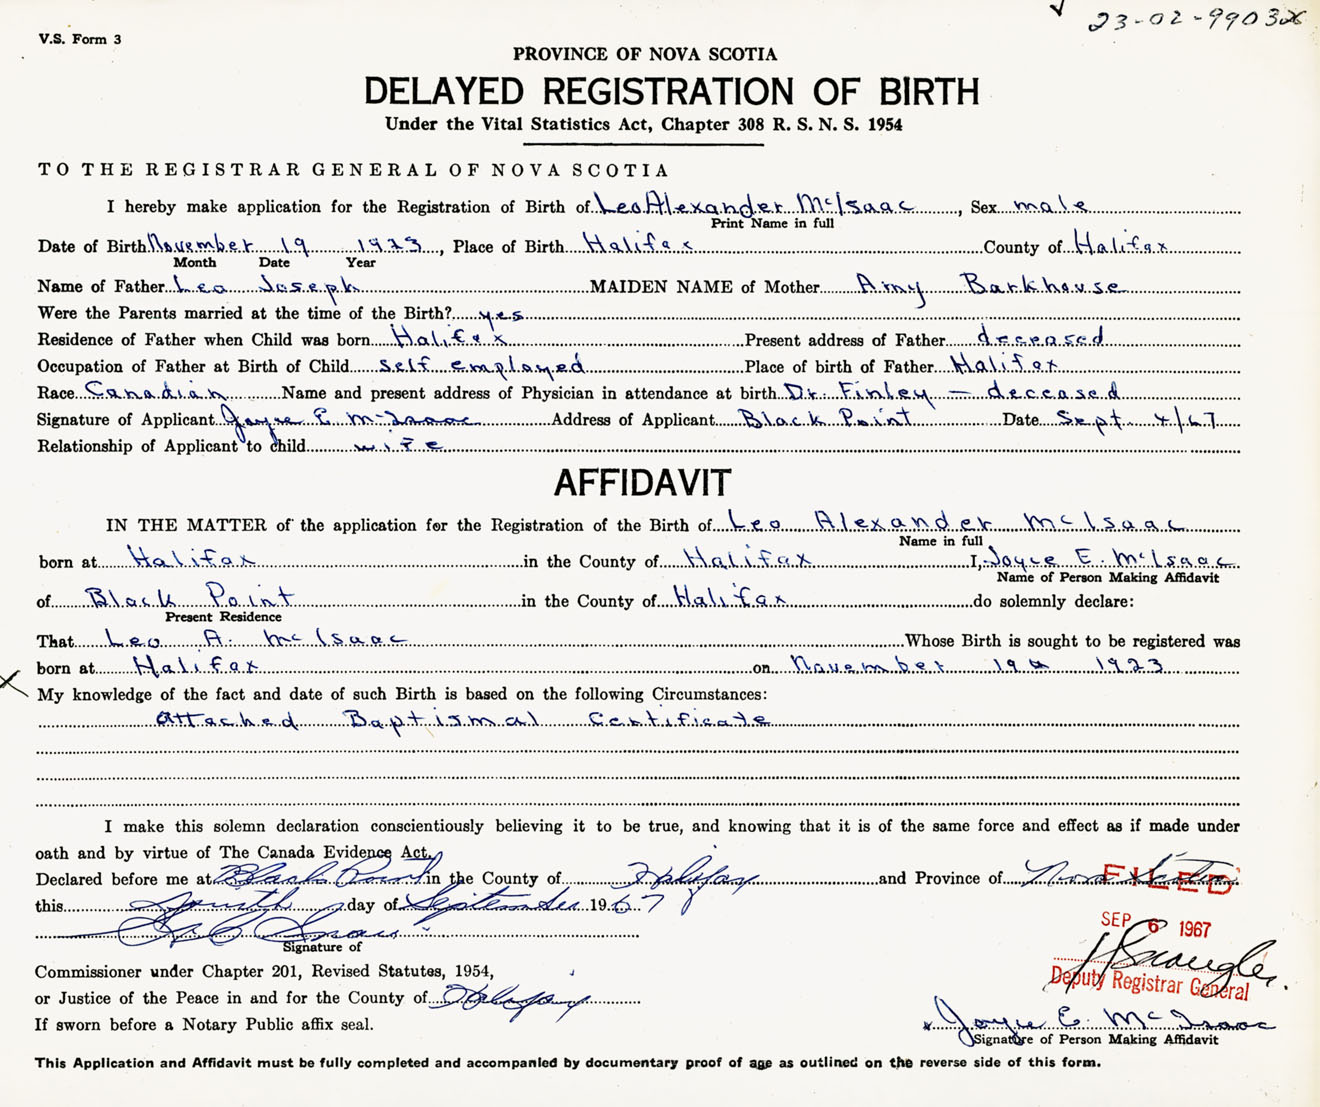 23-02-99032
V.S. Form 3
PROVINCE OF NOVA SCOTIA
DELAYED REGISTRATION OF BIRTH
Under the Vital Statistics Act, Chapter 308 R. S. N. S. 1954
TO THE REGISTRAR GENERAL OF NOVA SCOTIA
I hereby make application for the Registration of Birth of Leo Alexander McIsaac, Sex male
Print Name in full
Date of Birth November 19 1923, Place of Birth Halifax County of Halifax
Month Date Year
Name of Father Leo Joseph MAIDEN NAME of Mother Amy Barkhouse
Were the Parents married at the time of the Birth? yes
Residence of Father when Child was born Halifax Present address of Father deceased
Occupation of Father at Birth of Child self employed Place of birth of Father Halifax
Race Canadian Name and present address of Physician in attendance at birth Dr. Finley — deceased
Signature of Applicant Joyce E. McIsaac Address of Applicant Black Point Date Sept. 4/67
Relationship of Applicant to child wife
AFFIDAVIT
IN THE MATTER of the application for the Registration of the Birth of Leo Alexander McIsaac
Name in full
born at Halifax in the County of Halifax I, Joyce E. McIsaac
Name of Person Making Affidavit
of Black Point in the County of Halifax do solemnly declare:
Present Residence
That Leo A. McIsaac Whose Birth is sought to be registered was
born at Halifax on November 19th 1923
My knowledge of the fact and date of such Birth is based on the following Circumstances:
Attached Baptismal Certificate
I make this solemn declaration conscientiously believing it to be true, and knowing that it is of the same force and effect as if made under
oath and by virtue of The Canada Evidence Act.
Declared before me at Black Point in the County of Halifax and Province of Nova Scotia
FILED
this fourth day of September 1967
SEP 6 1967
Signature of
Commissioner under Chapter 201, Revised Statutes, 1954,
Deputy Registrar General
or Justice of the Peace in and for the County of Halifax
If sworn before a Notary Public affix seal.
x Joyce E. McIsaac
Signature of Person Making Affidavit
This Application and Affidavit must be fully completed and accompanied by documentary proof of age as outlined on the reverse side of this form.